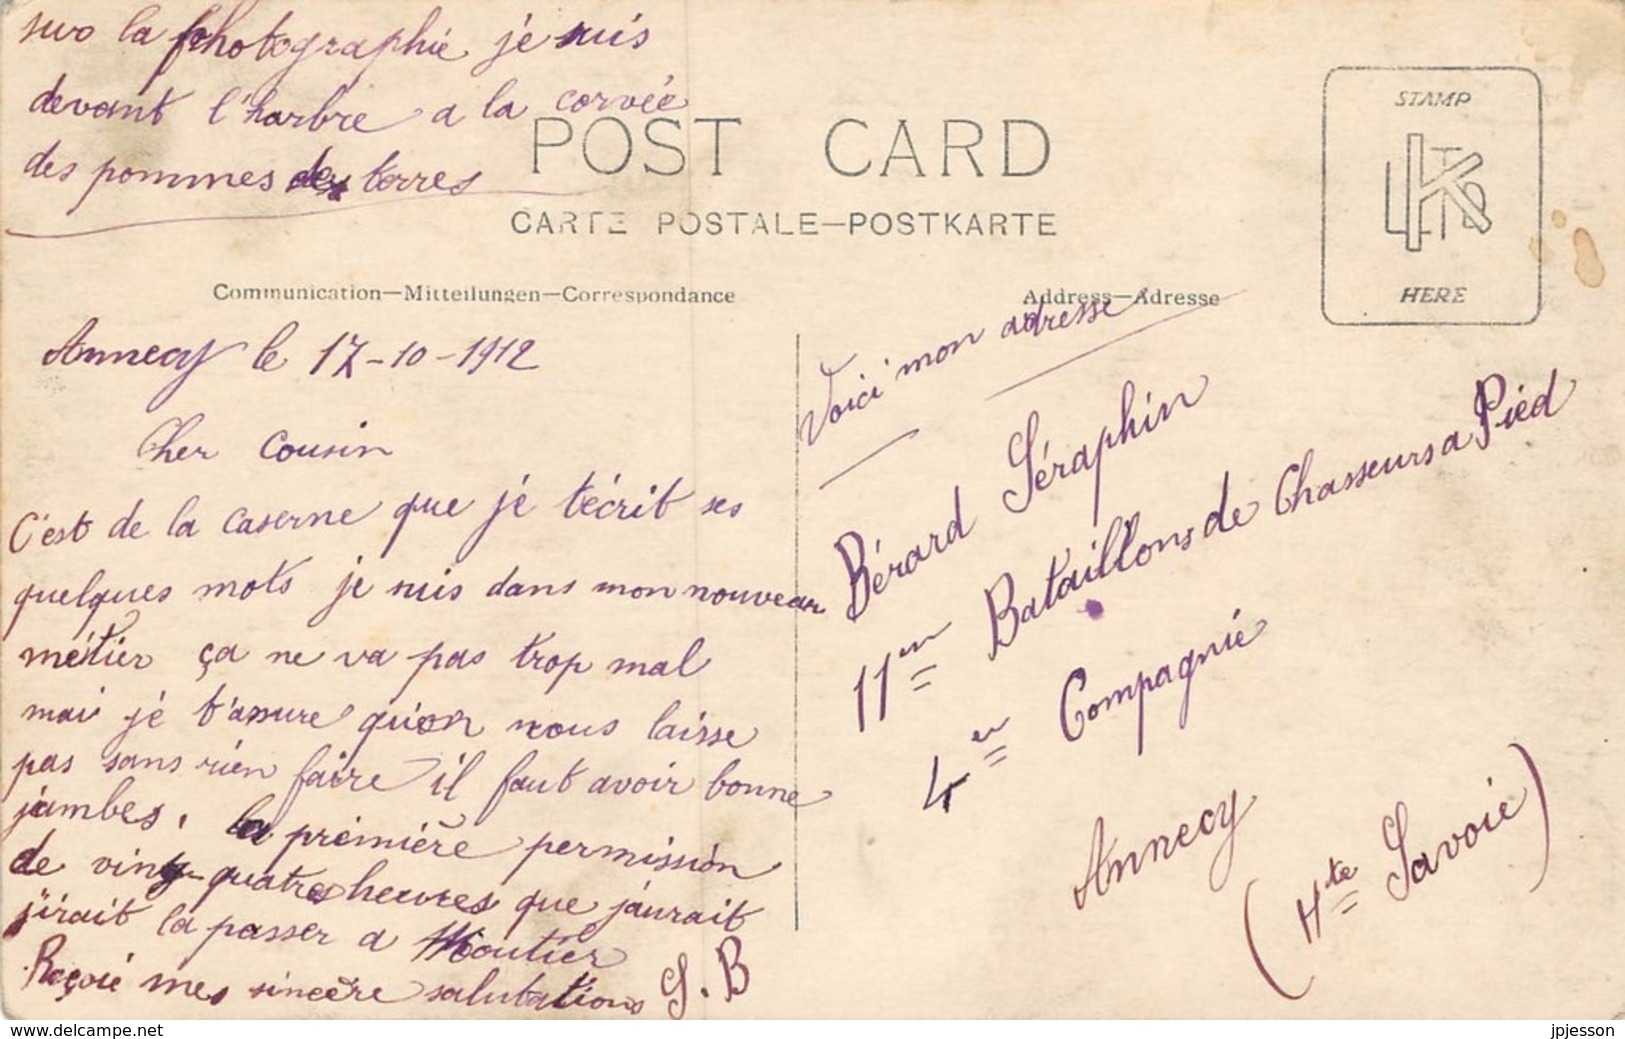 sur la photographie je suis
devant l'harbre a la corvée
des pommes des terres
POST CARD
CARTE POSTALE—POSTKARTE
Communication—Mitteilungen—Correspondance
Address—Adresse
STAMP
HERE
Annecy le 17-10-1912
Cher Cousin
C'est de la caserne que je técrit ses
quelques mots je suis dans mon nouveau
métier ça ne va pas trop mal
mai je t'assure qu'on nous laisse
pas sans rien faire il faut avoir bonne
jambes, la première permission
de vingt-quatres heures que j'aurait
j'irait la passer a Moutier
Reçoie mes sincère salutations
S. B
Voici mon adresse
Bérard Séraphin
11em Bataillons de Chasseurs a Pied
4em Compagnie
Annecy
(Hte Savoie)
www.delcampe.net
jpjesson